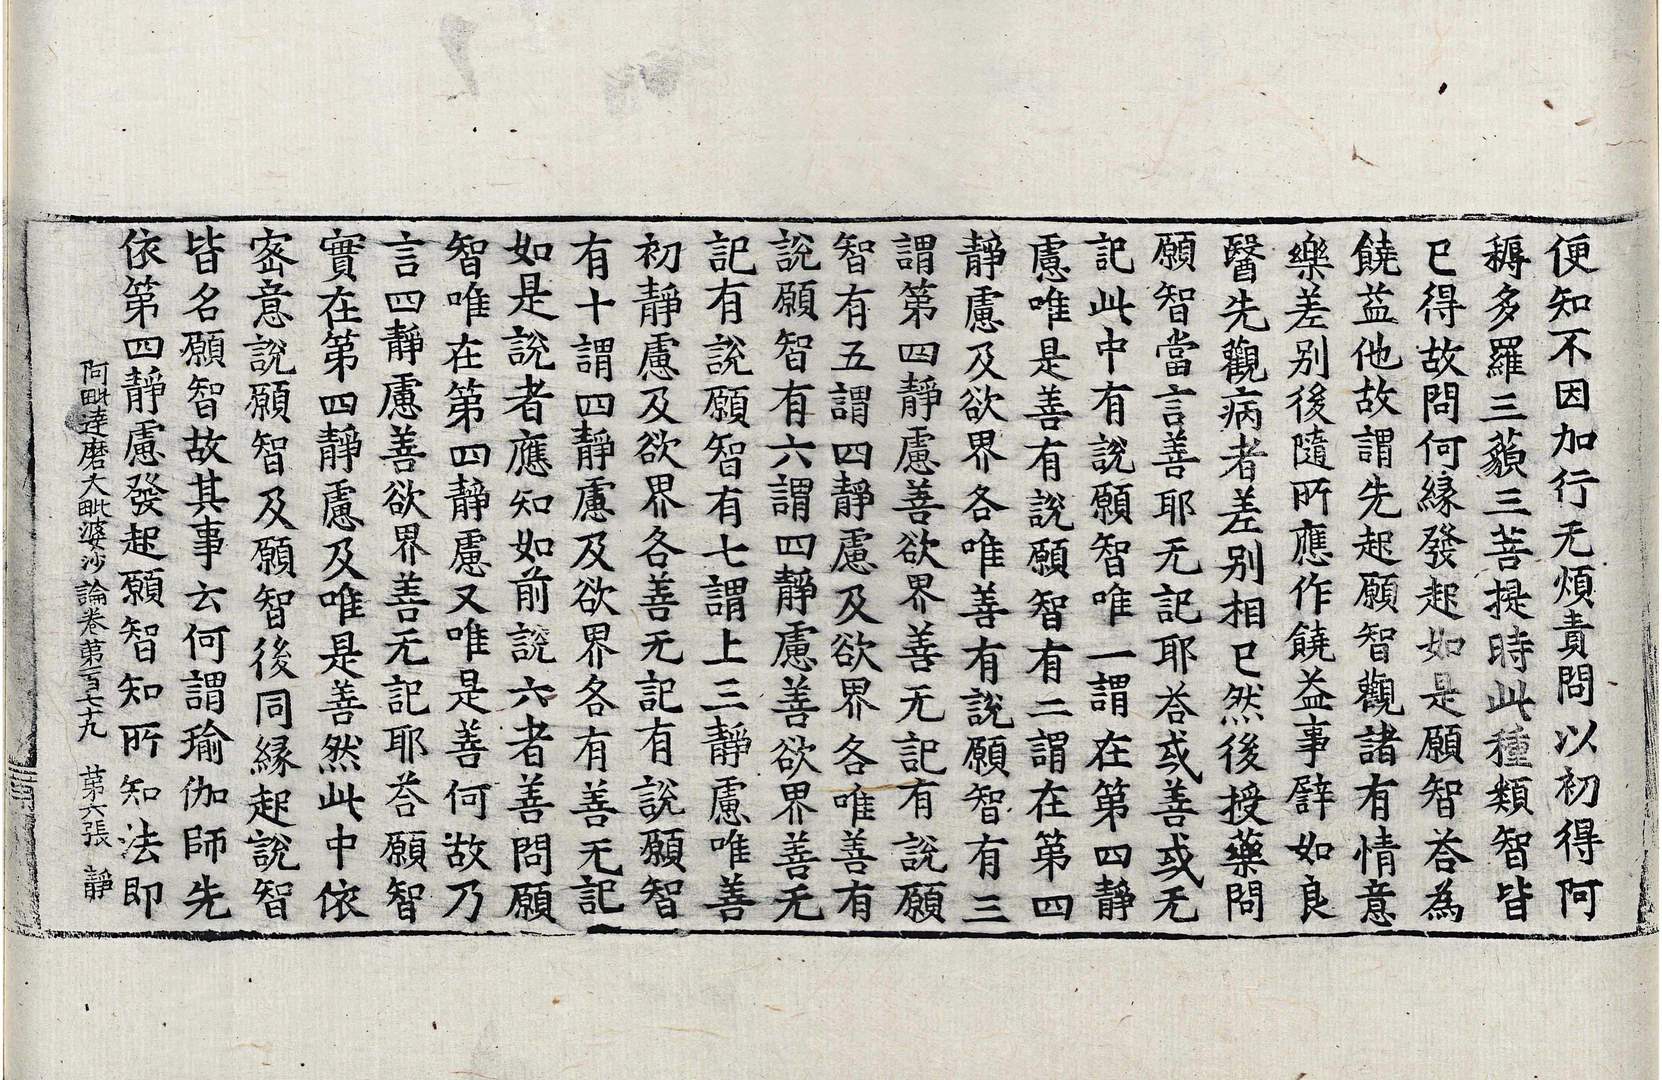 便知不因加行无煩責問以初得阿
耨多羅三藐三菩提時此種類智皆
已得故問何緣發起如是願智荅為
饒益他故謂先起願智觀諸有情意
樂差別後隨所應作饒益事譬如良
醫先觀病者差別相已然後授藥問
願智當言善耶无記耶荅或善或无
記此中有說願智唯一謂在第四靜
慮唯是善有說願智有二謂在第四
靜慮及欲界各唯善有說願智有三
謂第四靜慮善欲界善无記有說願
智有五謂四靜慮及欲界各唯善有
說願智有六謂四靜慮善欲界善无
記有說願智有七謂上三靜慮唯善
初靜慮及欲界各善无記有說願智
有十謂四靜慮及欲界各有善无記
如是說者應知如前說六者善問願
智唯在第四靜慮又唯是善何故乃
言四靜慮善欲界善无記耶荅願智
實在第四靜慮及唯是善然此中依
密意說願智及願智後同緣起說智
皆名願智故其事云何謂瑜伽師先
依第四靜慮發起願智知所知法即
阿毗達磨大毗婆沙論卷第一百七十九 第六張 靜